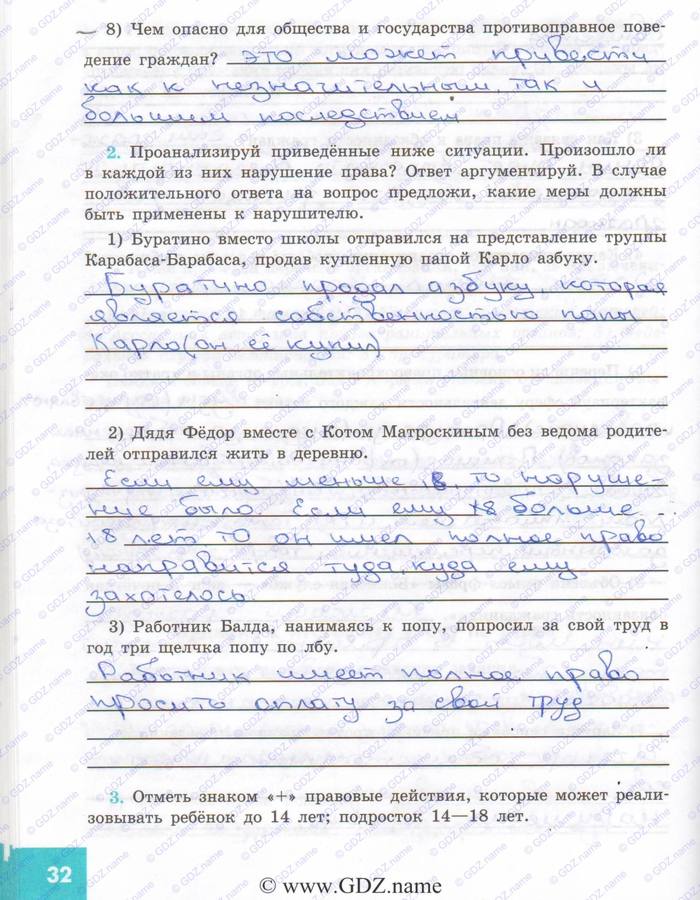 8) Чем опасно для общества и государства противоправное пове-
дение граждан? это может привести
как к незначительным, так и
большим последствием
2. Проанализируй приведённые ниже ситуации. Произошло ли
в каждой из них нарушение права? Ответ аргументируй. В случае
положительного ответа на вопрос предложи, какие меры должны
быть применены к нарушителю.
1) Буратино вместо школы отправился на представление труппы
Карабаса-Барабаса, продав купленную папой Карло азбуку.
Буратино продал азбуку, которая
является собственностью папы
Карло(он её купил)
2) Дядя Фёдор вместе с Котом Матроскиным без ведома родите-
лей отправился жить в деревню.
Если ему меньше 8, то наруше-
ние было. Если ему 18 больше
18 лет то он имел полное право
направится туда, куда ему
захотелось.
3) Работник Балда, нанимаясь к попу, попросил за свой труд в
год три щелчка попу по лбу.
Работник имеет полное право
просить оплату за свой труд
3. Отметь знаком «+» правовые действия, которые может реали-
зовывать ребёнок до 14 лет; подросток 14—18 лет.
32
© www.GDZ.name